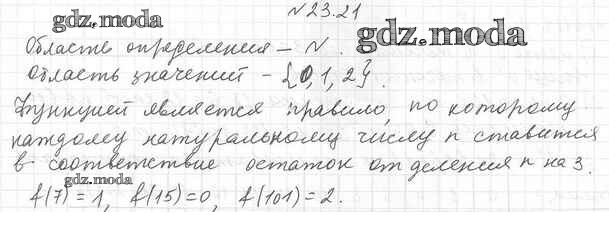 N 23.21
gdz.moda
gdz.moda
Область определения – N.
Область значений – {0, 1, 2}.
Функцией является правило, по которому
каждому натуральному числу n ставится
в соответствие остаток от деления n на 3.
gdz.moda
f(7) = 1, f(15) = 0, f(101) = 2.